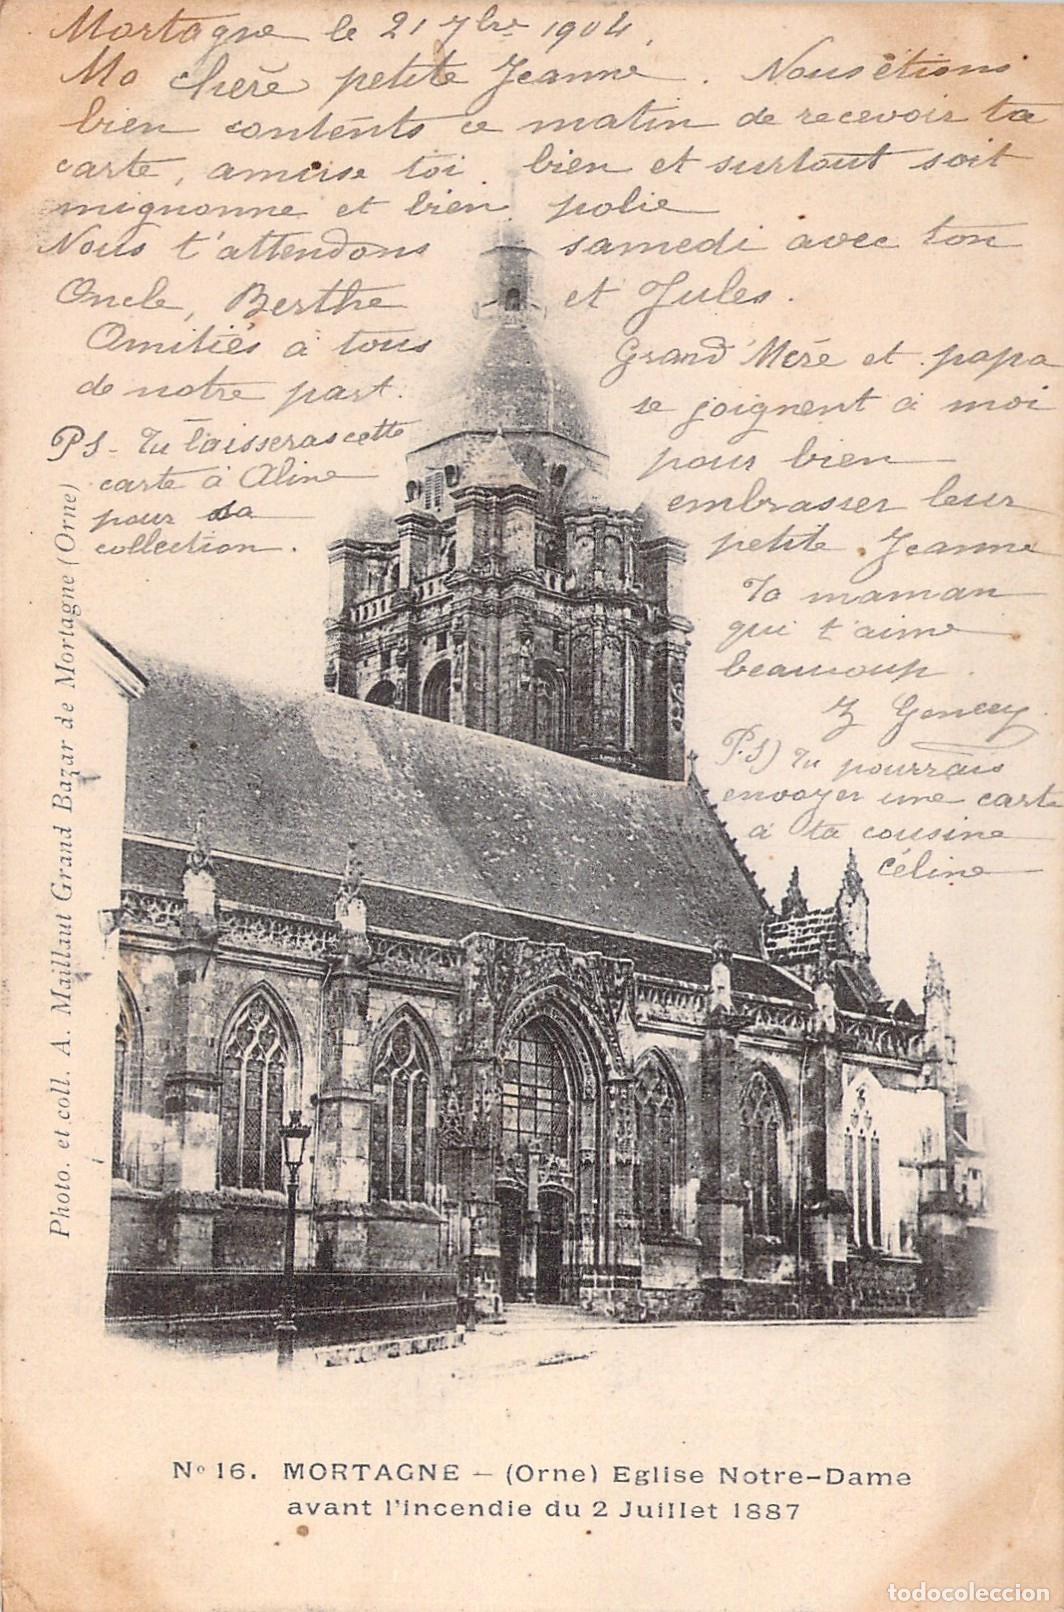 Mortagne le 21 7bre 1904.
Ma chère petite Jeanne. Nous étions
bien contents ce matin de recevoir ta
carte, amuse toi bien et surtout soit
mignonne et bien polie
Nous t'attendons samedi avec ton
Oncle, Berthe et Jules.
Amitiés à tous
de notre part.
PS - Tu laisseras cette
carte à Aline
pour sa
collection.
Grand'Mère et papa
se joignent à moi
pour bien
embrasser leur
petite Jeanne
Ta maman
qui t'aime
beaucoup.
P.S) Tu pourrais
envoyer une carte
à ta cousine
Céline
Photo. et coll. A. Maillaut Grand Bazar de Mortagne (Orne)
No 16. MORTAGNE — (Orne) Eglise Notre-Dame
avant l'incendie du 2 Juillet 1887
todocoleccion